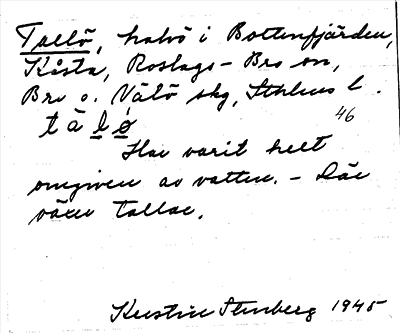 Tallö, halvö i Bottenfjärden,
Kåsta, Roslags-Bro sn,
Bro o. Vätö skg, Sthlms l.
tàlø
46
Har varit helt
omgiven av vatten. – Där
växer tallar.
Kerstin Stenberg 1945